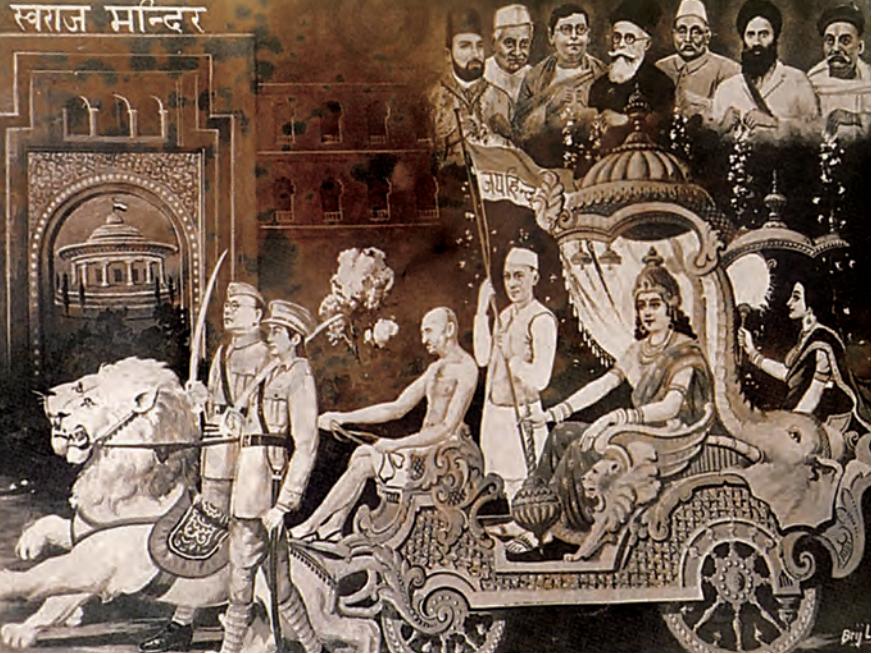 स्वराज मन्दिर
जयहिन्द
Brij L